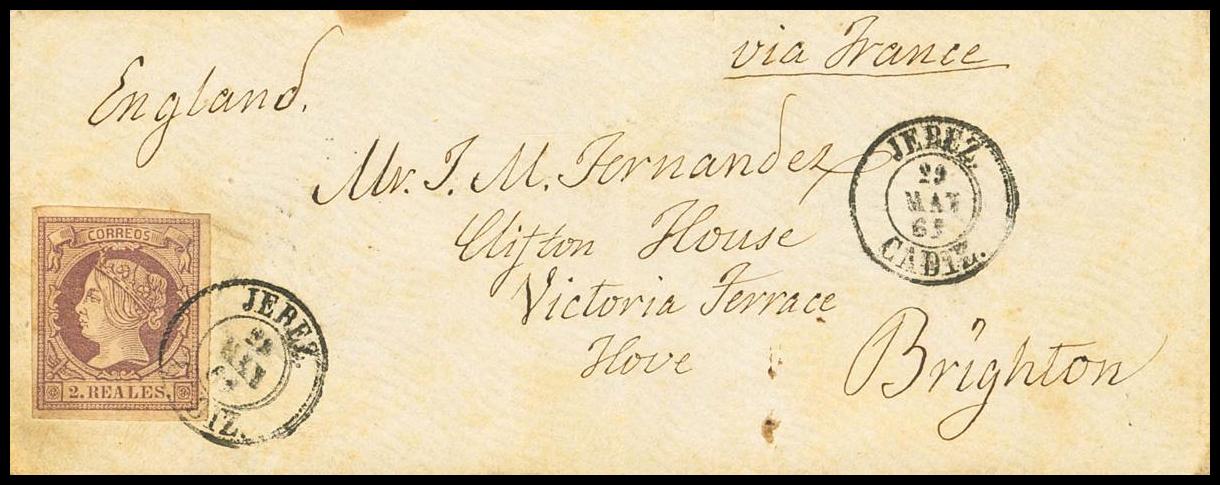 via France
England.
Mr. J. M. Fernandez
Clifton House
Victoria Terrace
Hove
Brighton
JEREZ.
29
MAY
65
CADIZ.
CORREOS
2. REALES.
JEREZ.
MAY